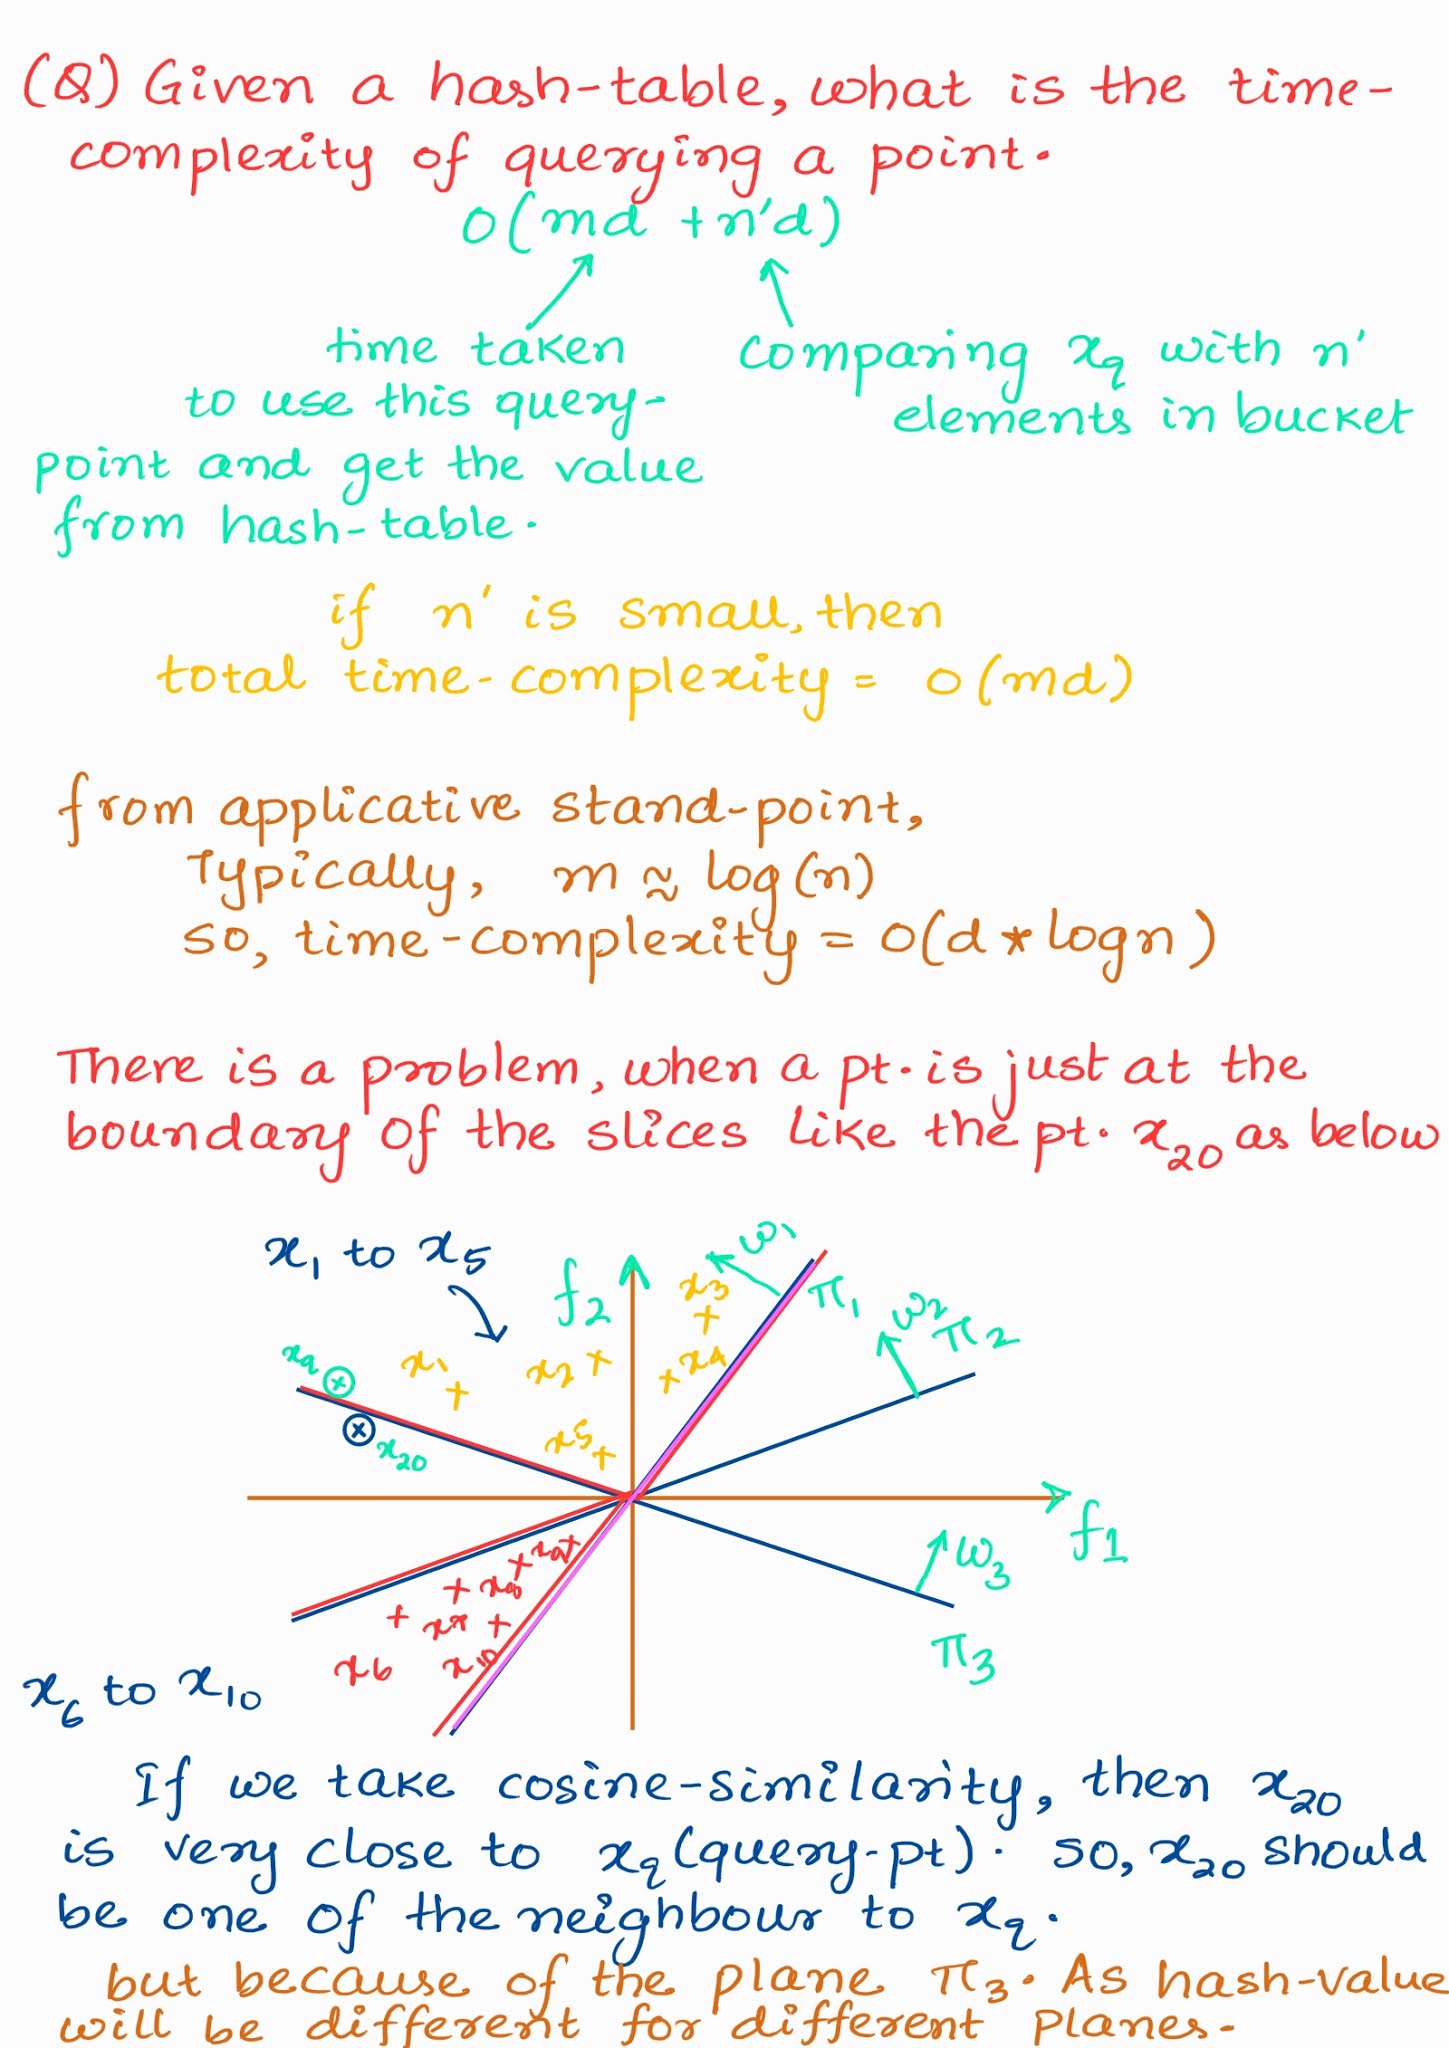 (Q) Given a hash-table, what is the time-
complexity of querying a point.
O(md + n'd)
time taken
to use this query-
point and get the value
from hash-table.
comparing xq with n'
elements in bucket
if n' is small, then
total time-complexity = O(md)
from applicative stand-point,
Typically, m ≈ log(n)
so, time-complexity = O(d * logn)
There is a problem, when a pt. is just at the
boundary of the slices like the pt. x20 as below
x1 to x5
f2
x3
w1
π1
w2
π2
xq
x1
x2
x4
x20
x5
f1
x9
w3
x8
x7
π3
x6
x10
x6 to x10
If we take cosine-similarity, then x20
is very close to xq (query-pt). so, x20 should
be one of the neighbour to xq.
but because of the plane π3. As hash-value
will be different for different planes.